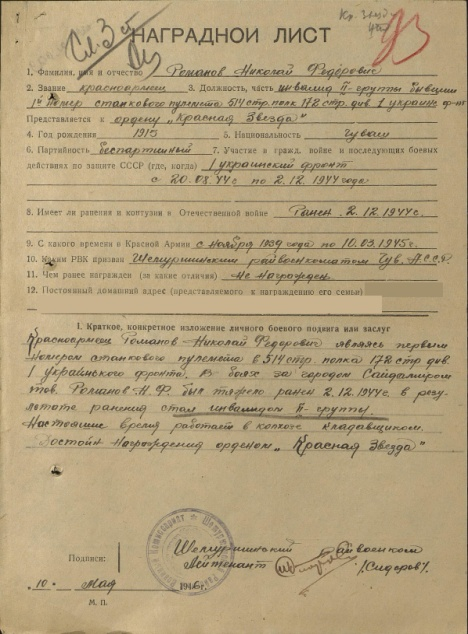 Сл. 3 ст
НАГРАДНОЙ ЛИСТ
1. Фамилия, имя и отчество Романов Николай Федорович
2. Звание красноармеец 3. Должность, часть инвалид II-группы бывший
1й номер станкового пулемета 514 стр. полк 172 стр. див. 1 украинс. фр-нт
Представляется к ордену „Красная Звезда“
4. Год рождения 1913 5. Национальность чуваш
6. Партийность беспартийный 7. Участие в гражд. войне и последующих боевых
действиях по защите СССР (где, когда) 1 украинский фронт
с 20.08.44 г. по 2.12.1944 года
8. Имеет ли ранения и контузии в Отечественной войне Ранен 2.12.1944 г.
9. С какого времени в Красной Армии с ноября 1939 года по 10.03.1945 г.
10. Каким РВК призван Шемуршинским райвоенкоматом Чув. АССР
11. Чем ранее награжден (за какие отличия) Не награжден
12. Постоянный домашний адрес (представляемого к награждению его семьи)
I. Краткое, конкретное изложение личного боевого подвига или заслуг
Красноармеец Романов Николай Федорович являясь первым
номером станкового пулемета в 514 стр. полка 172 стр. див.
1 украинского фронта. В боях за городом Сайдамиром
тов. Романов Н.Ф. был тяжело ранен 2.12.1944 г. в резу-
льтате ранения стал инвалидом II-группы
Настоящие время работает в колхозе кладовщиком.
Достойн награждения орденом „Красная Звезда“
Шемуршинский Райвоенком
Подписи: Лейтенант /Сидоров/.
„10“ Мая 1946 г.
М. П.